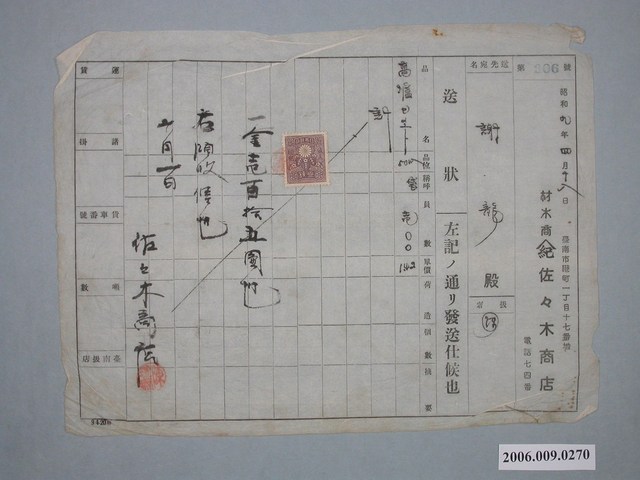 第 206 號
昭和九年四月十八日
臺南市港町一丁目十七番地
材木商 佐々木商店
電話七四番
先宛名
謝 龍 殿
扱店
送狀
左記ノ通リ發送仕候也
品名
品位
稱呼
員數
單價
荷造
個數
摘要
計
一金壱百拾五圓也
右領收候也
十月一日
佐々木商店
運賃
諸掛
貨車番號
噸數
臺南扱店
2006.009.0270